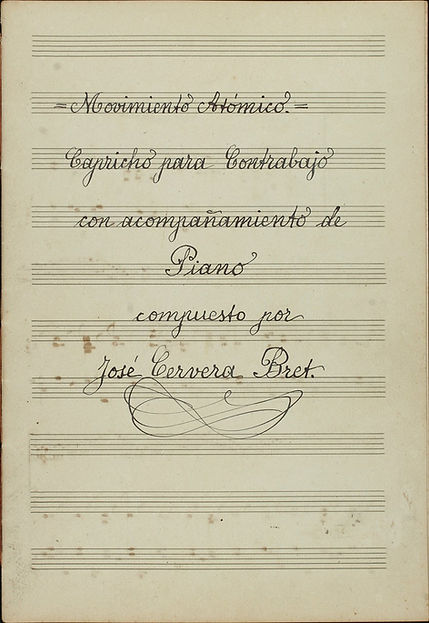 = Movimiento Atómico. =
Capricho para Contrabajo
con acompañamiento de
Piano
compuesto por
José Cervera Bret.